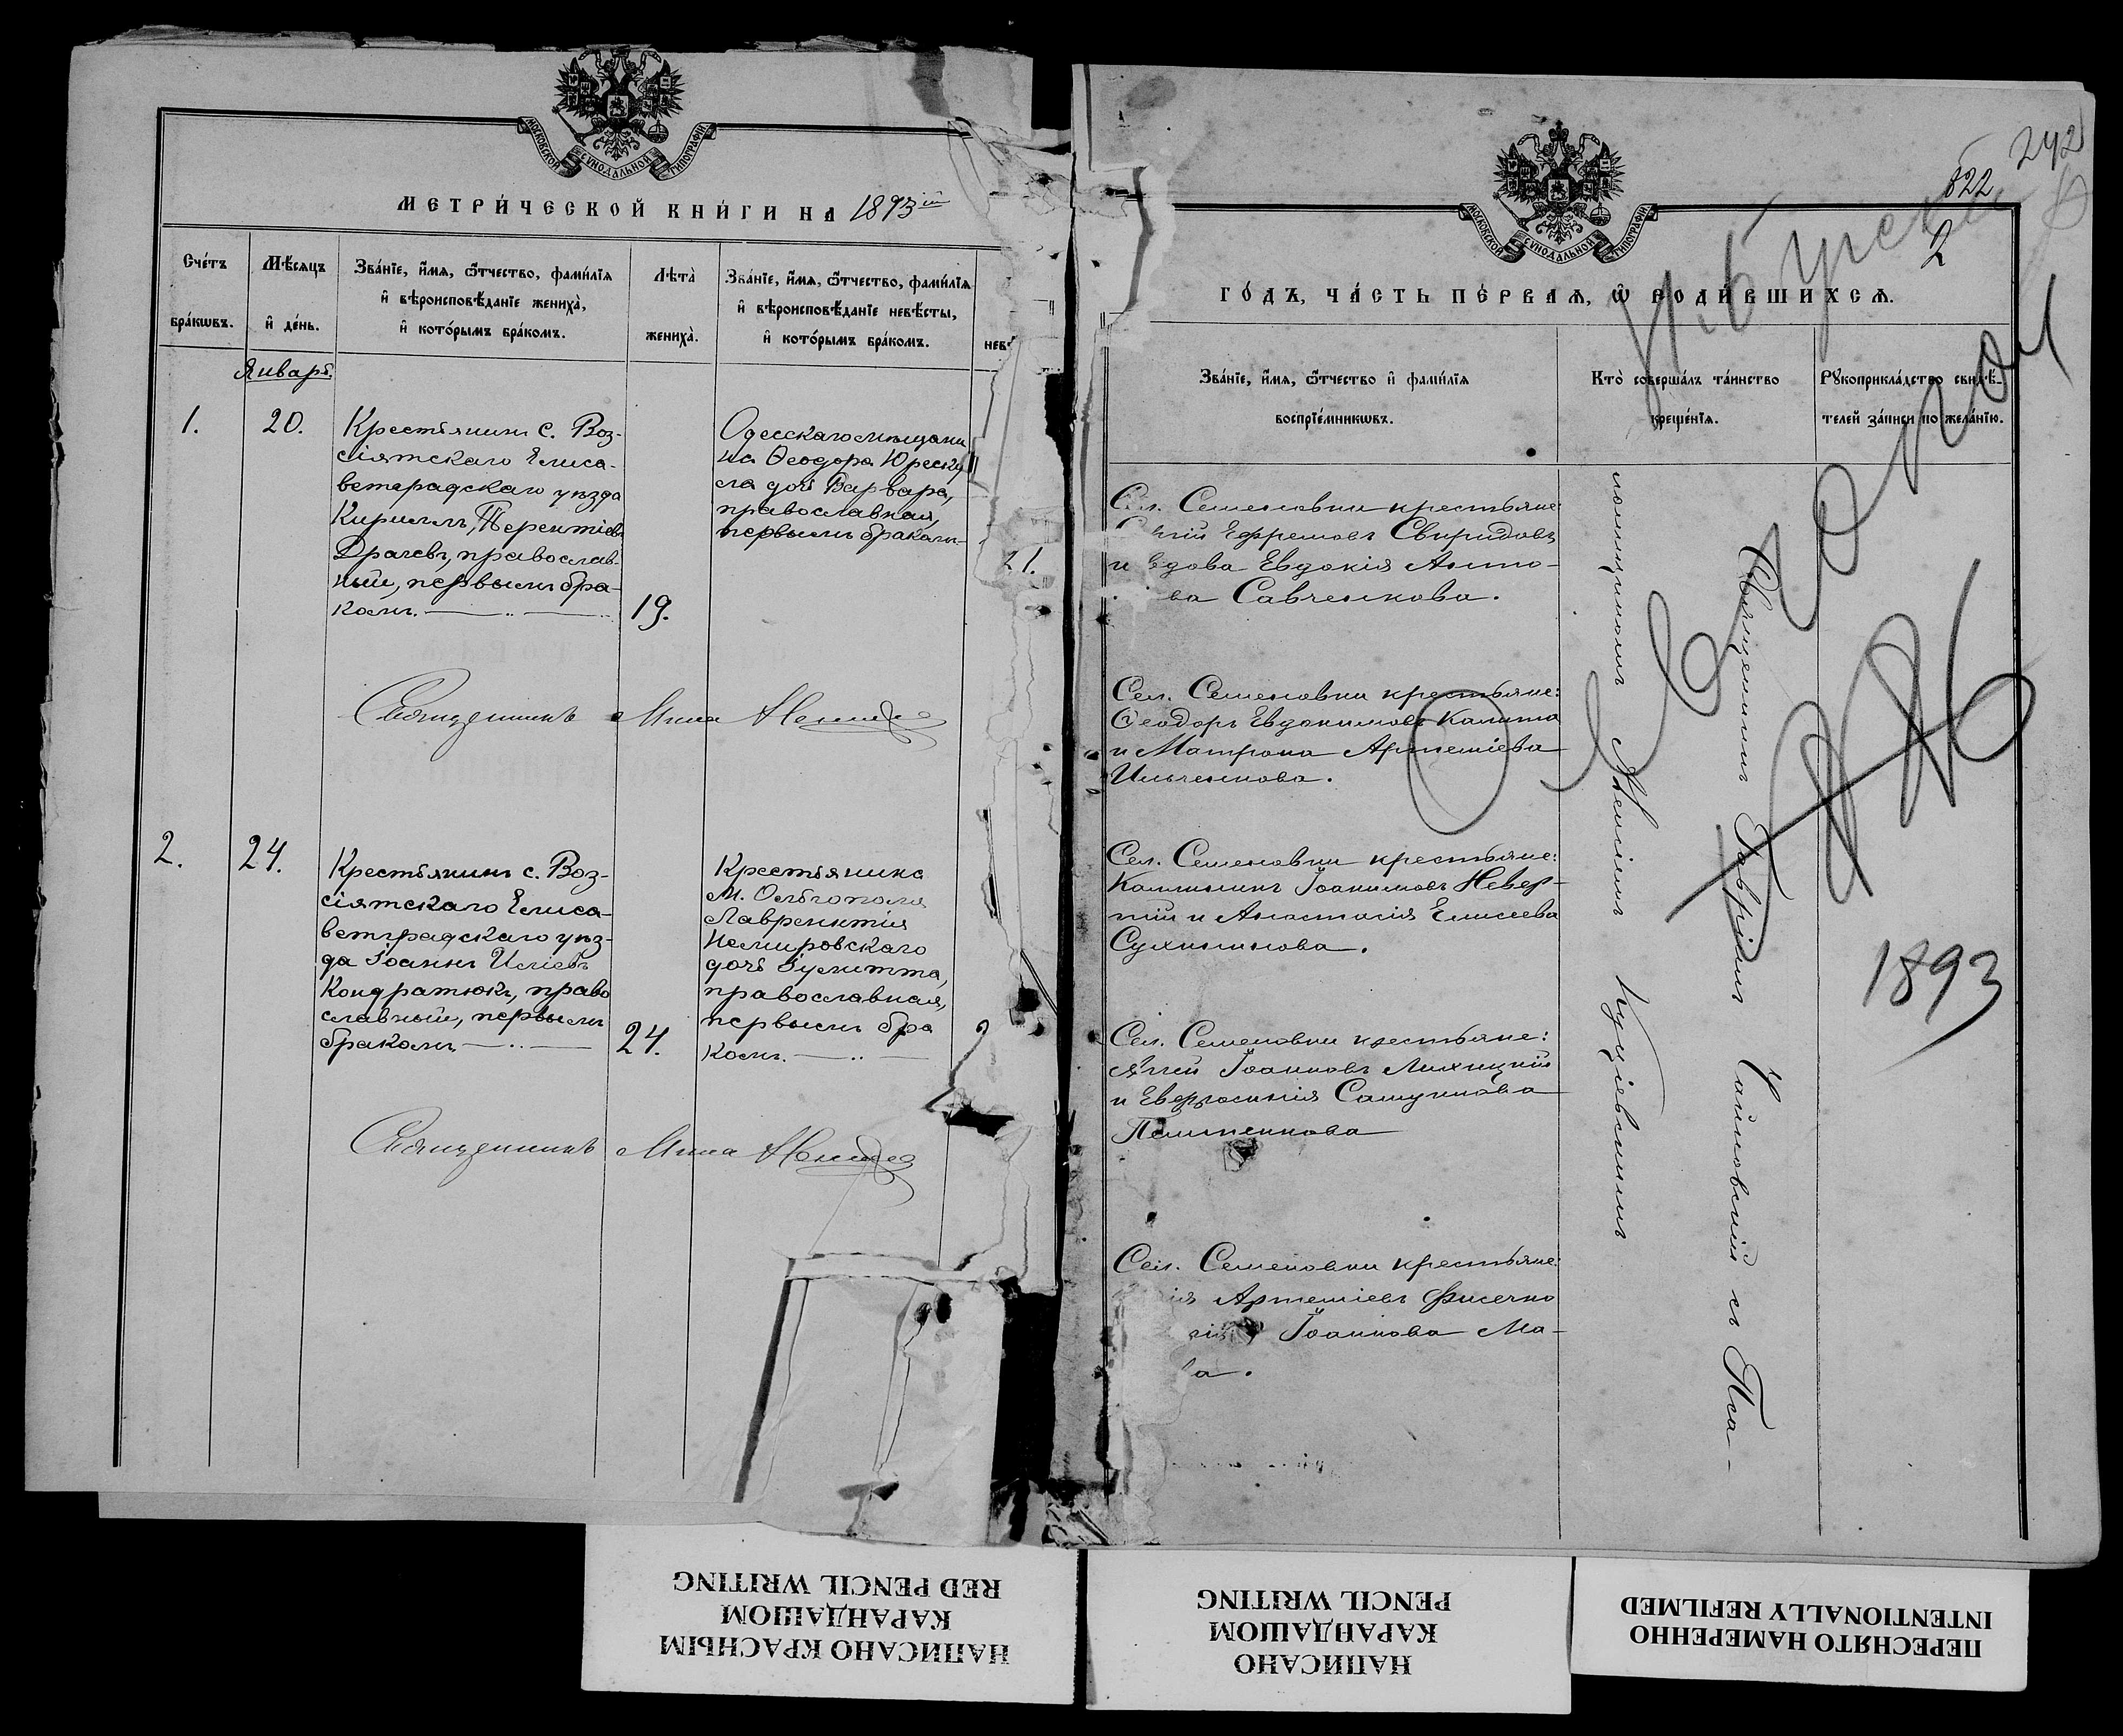 МОСКОВСКОЙ СѴНОДАЛЬНОЙ ТИПОГРАФІИ.
МЕТРИ́ЧЕСКОЙ КНИ́ГИ НА 1893 ій
Сче́тъ
бра́кωвъ.
Мѣ́сяцъ
и҆ де́нь.
Зва́нїе, и҆́мѧ, ѻ҆́тчество, фами́лїѧ
и҆ вѣроисповѣ́данїе жениха̀,
и҆ кото́рымъ бра́комъ.
Лѣта̀
жениха̀.
Зва́нїе, и҆́мѧ, ѻ҆́тчество, фами́лїѧ
и҆ вѣроисповѣ́данїе невѣ́сты,
и҆ кото́рымъ бра́комъ.
Январь.
1.
20.
Крестьянинъ с. Воз-
сіятскаго Елиса-
ветградскаго уѣзда
Кириллъ Терентіевъ
Драчевъ, православ-
ный, первымъ бра-
комъ.
19.
Одесскаго мѣщани
на Ѳеодора Юреску
ла дочь Варвара,
православная,
первымъ бракомъ
21.
Священникъ Мина
2.
24.
Крестьянинъ с. Воз-
сіятскаго Елиса-
ветградскаго уѣз-
да Іоаннъ Иліевъ
Кондратюкъ, право
славный, первымъ
бракомъ
24.
Крестьянина
м. Ольгополя
Лаврентія
Немировскаго
дочь Іулитта,
православная,
первымъ бра
комъ.
2
Священникъ Мина
242
822
2
МОСКОВСКОЙ СѴНОДАЛЬНОЙ ТИПОГРАФІИ.
ГО́ДЪ, ЧА́СТЬ ПЕ́РВАѦ, Ѡ҆ РОДИ́ВШИХСѦ.
Зва́нїе, и҆́мѧ, ѻ҆́тчество и҆ фами́лїѧ
воспрїе́мникωвъ.
Кто̀ соверша́лъ та́инство
креще́нїѧ.
Рꙋкоприкла́дство свидѣ́-
телей за́писи по жела́нїю.
Сел. Семеновки крестьяне
Ефремовъ Свиридовъ
и вдова Евдокія Анто-
ва Савченкова.
Сел. Семеновки крестьяне:
Ѳеодоръ Евдокимовъ Калита
и Матрона Артеміева
Ильченкова.
Сел. Семеновки крестьяне:
Каллиникъ Іоакимовъ Невер-
тій и Анастасія Елисеева
Сухининова.
Сел. Семеновки крестьяне:
Іоанновъ Лихицкій
и Евфросинія
Сел. Семеновки крестьяне:
Артеміевъ Фисечко
Іоаннова Ма-
ва.
Священникъ Гавріилъ Чайковскій съ Пса-
ломщикомъ Алексіемъ Куціевскимъ
1893
НАПИСАНО КРАСНЫМ
КАРАНДАШОМ
RED PENCIL WRITING
НАПИСАНО
КАРАНДАШОМ
PENCIL WRITING
ПЕРЕСНЯТО НАМЕРЕННО
INTENTIONALLY REFILMED